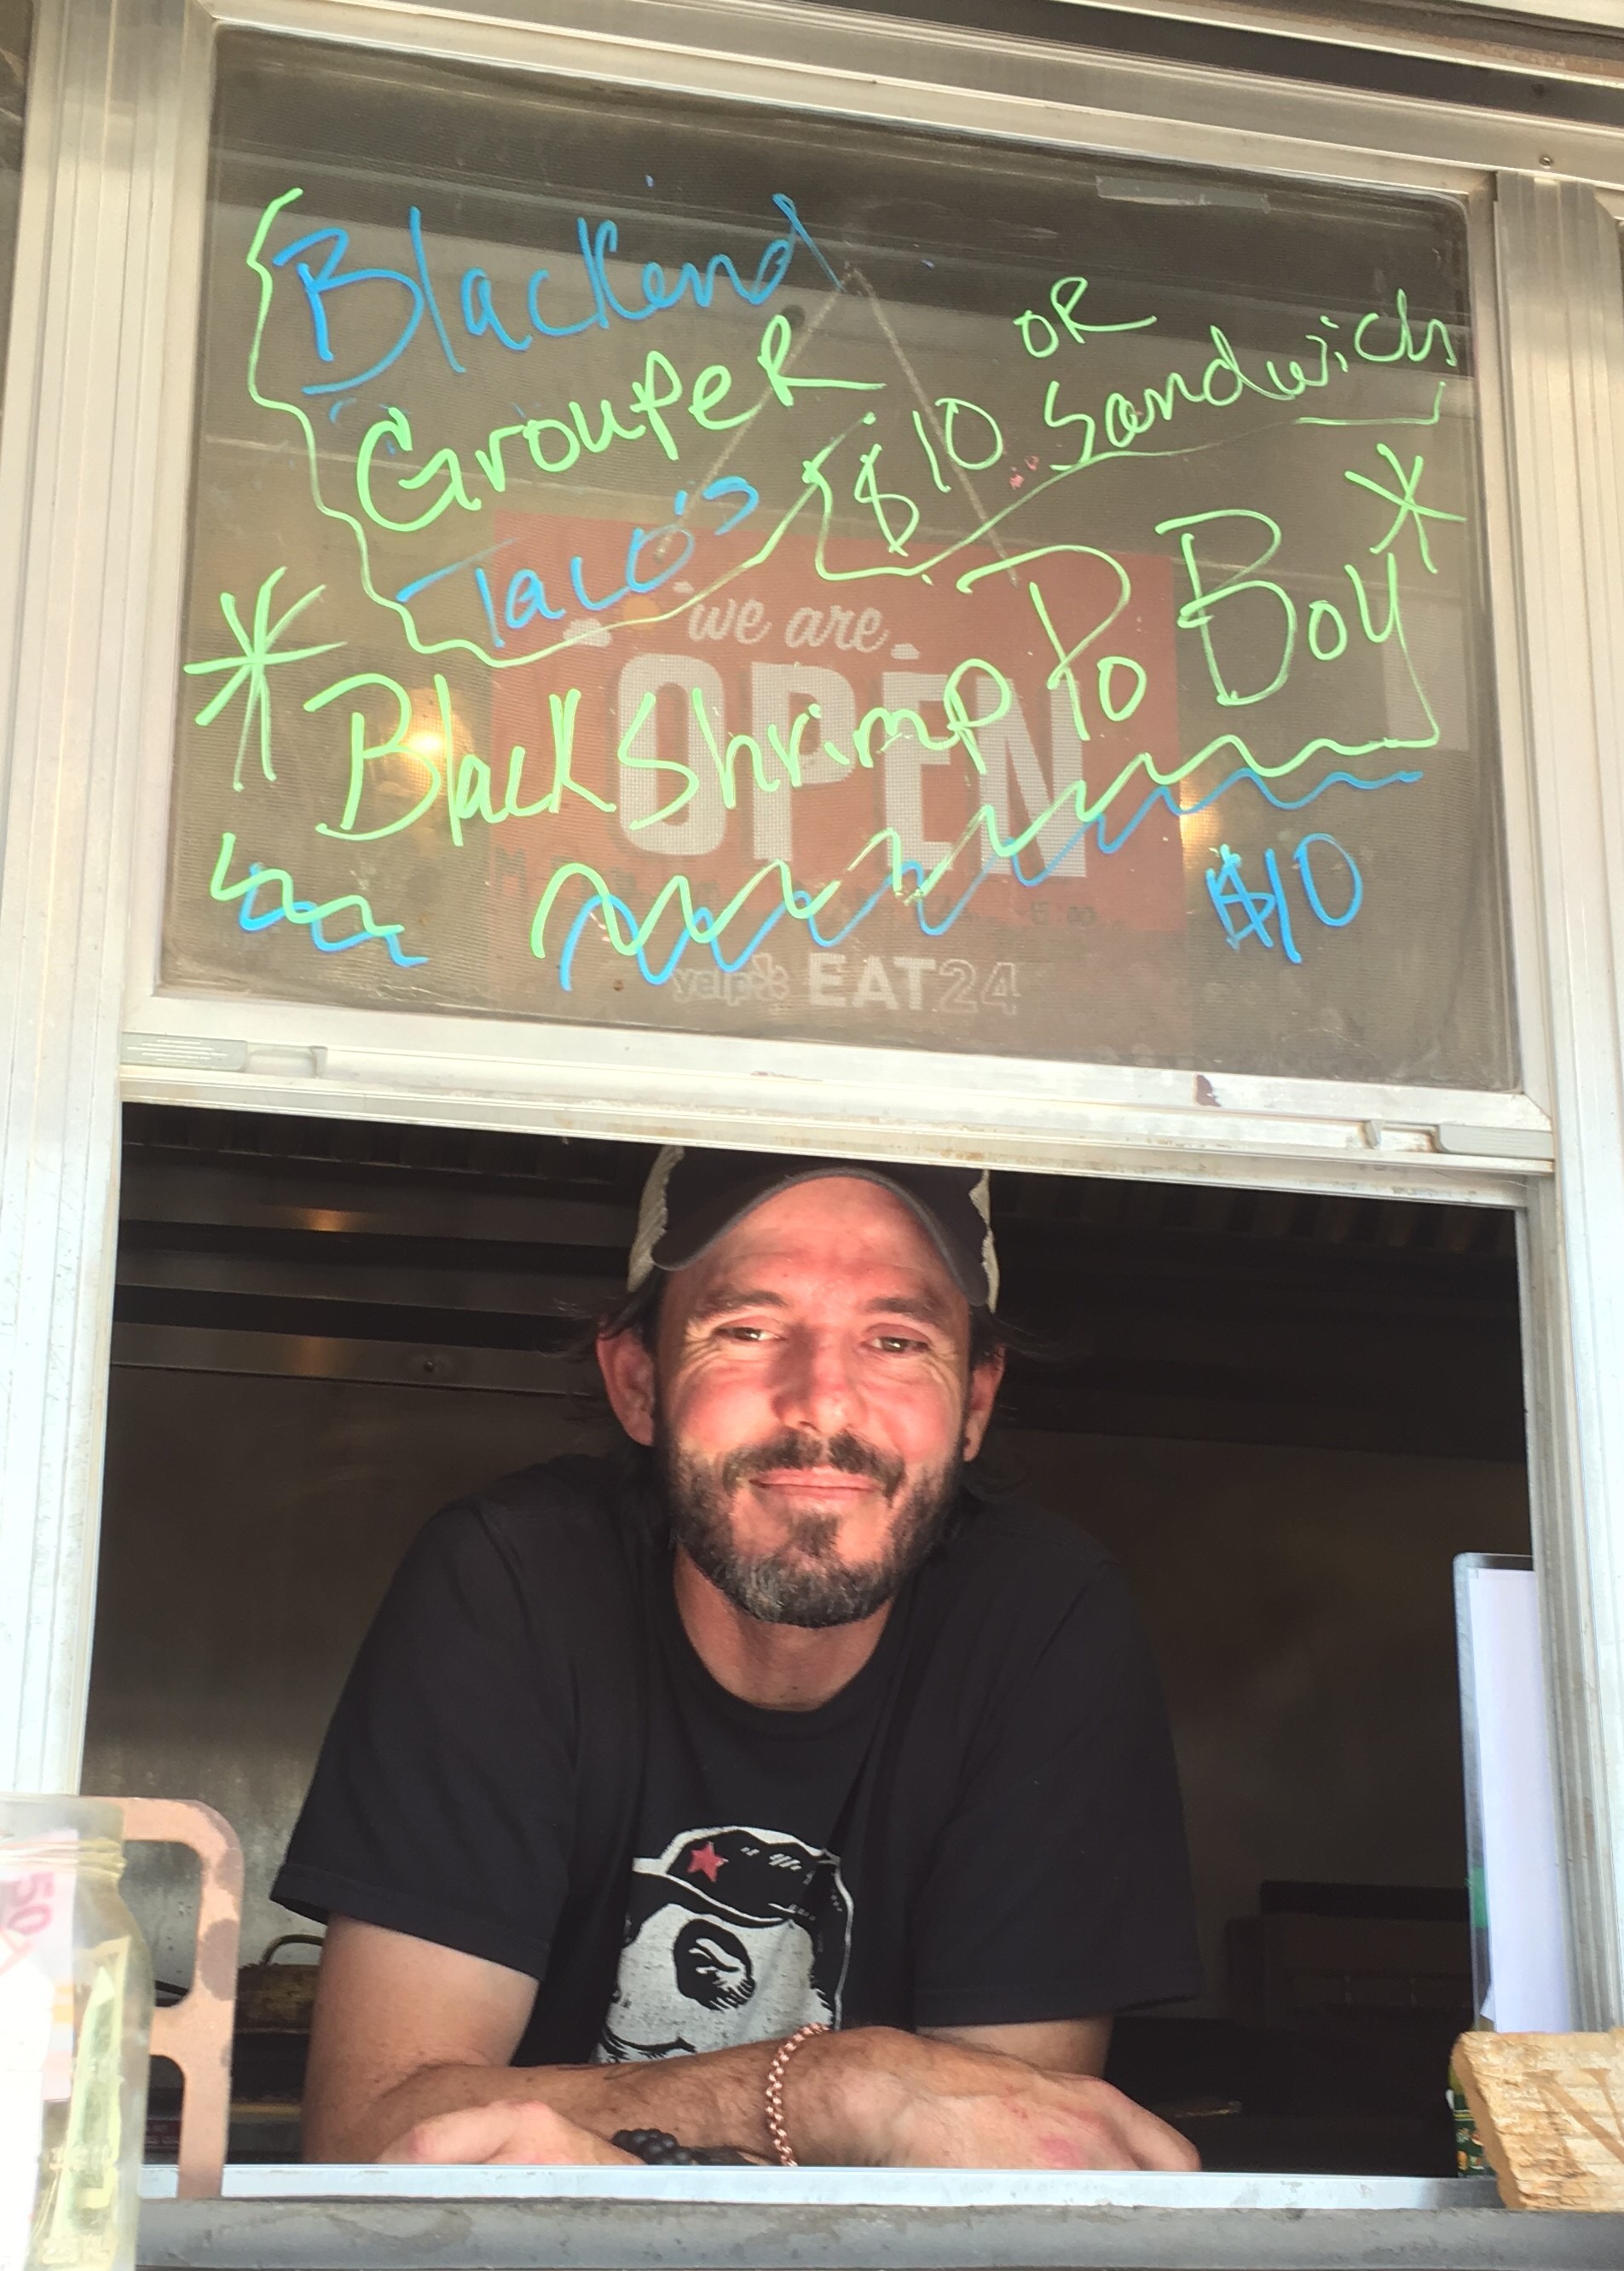 Blackend
GroupeR
Taco's
OR
$10 Sandwich
Black Shrimp Po Boy
$10
we are
OPEN
yelp EAT24
50
N